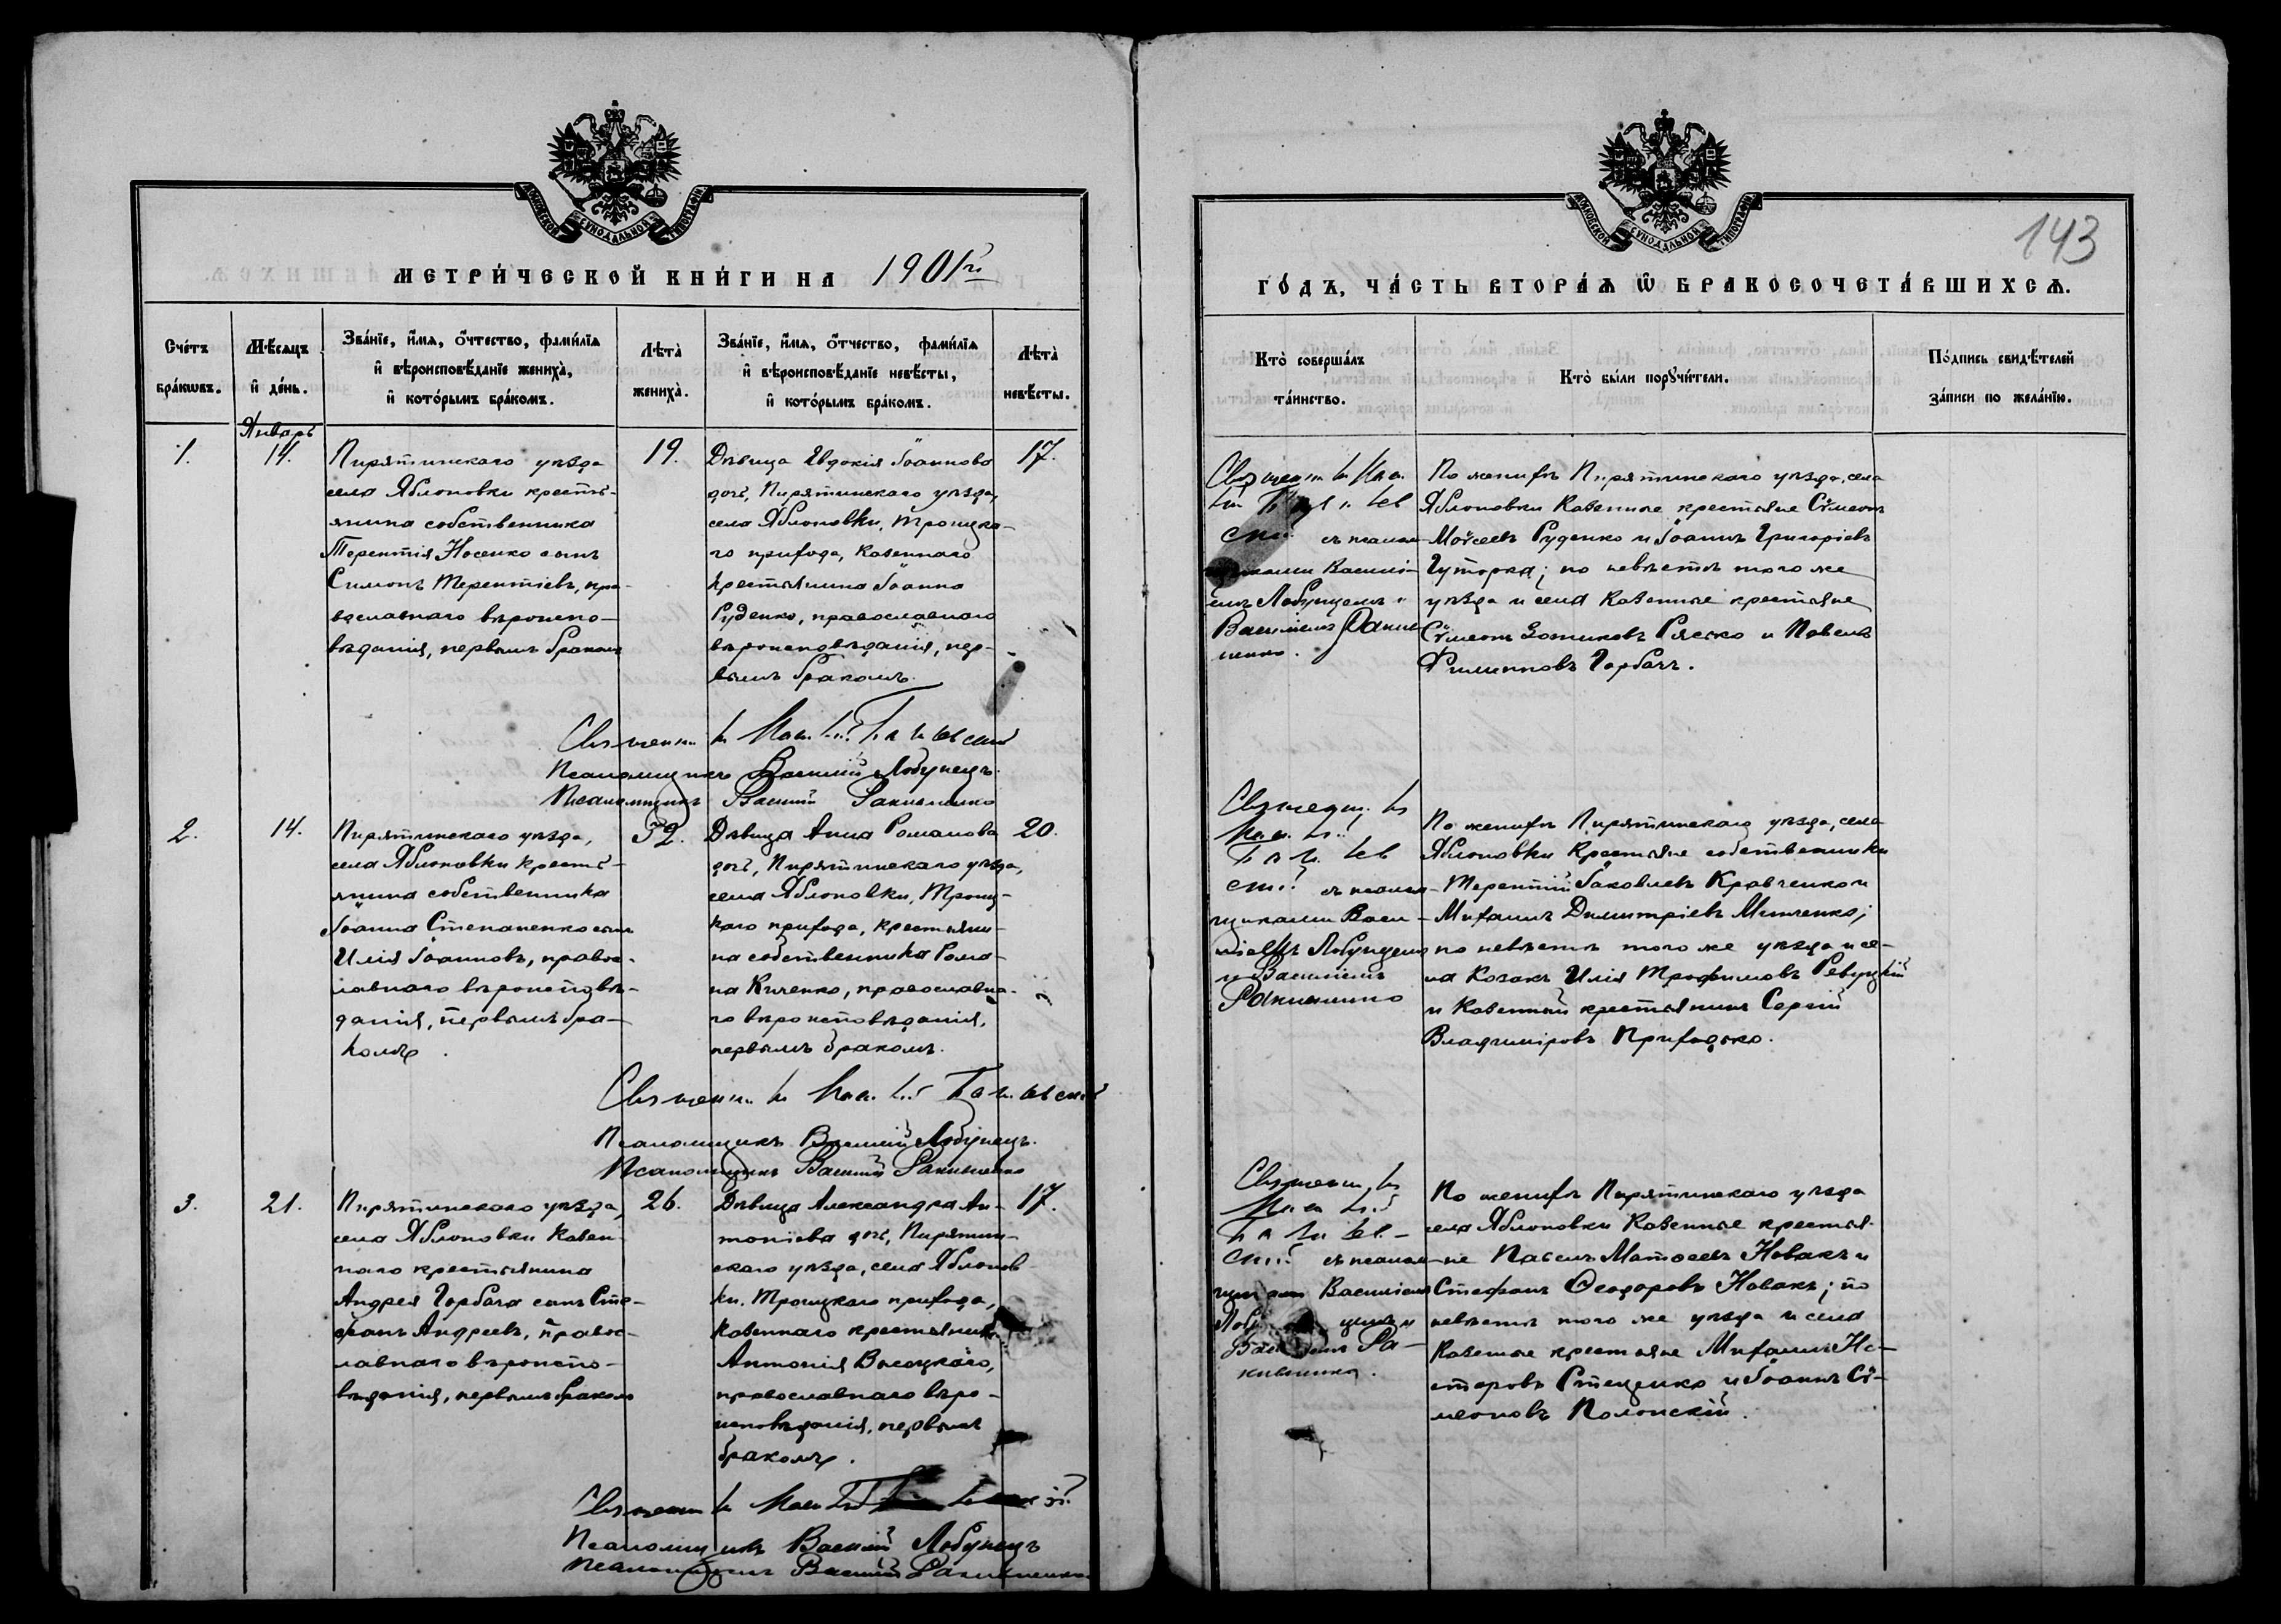 МОСКОВСКОЙ СѴНОДАЛЬНОЙ ТИПОГРАФІИ
МЕТРИ́ЧЕСКОЙ КНИ́ГИ НА 1901 г.
Сче́тъ бра́кѡвъ.
Мѣ́сяцъ и҆ де́нь.
Зва́нїе, и҆́мѧ, о҆́тчество, фами́лїѧ и҆ вѣроисповѣ́данїе жениха̀, и҆ кото́рымъ бра́комъ.
Лѣ́та жениха̀.
Зва́нїе, и҆́мѧ, о҆́тчество, фами́лїѧ и҆ вѣроисповѣ́данїе невѣ́сты, и҆ кото́рымъ бра́комъ.
Лѣ́та невѣ́сты.
Январь
1.
14.
Пирятинскаго уѣзда
села Яблоновки кресть-
янина собственника
Терентія Носенко сынъ
Симонъ Терентіевъ, пра-
вославнаго вѣроиспо-
вѣданія, первымъ бракомъ
19.
Дѣвица Евдокія Іоаннова
дочь, Пирятинскаго уѣзда,
села Яблоновки, Троицка-
го прихода, казеннаго
крестьянина Іоанна
Руденко, православнаго
вѣроисповѣданія, пер-
вымъ бракомъ.
17.
Священникъ
Псаломщикъ Василій Лобунецъ.
Псаломщикъ Василій
2.
14.
Пирятинскаго уѣзда,
села Яблоновки кресть-
янина собственника
Іоанна Степаненко сынъ
Илія Іоанновъ, право-
славнаго вѣроисповѣ-
данія, первымъ бра-
комъ.
32.
Дѣвица Анна Романова
дочь, Пирятинскаго уѣзда,
села Яблоновки, Троиц-
каго прихода, крестьяни-
на собственника Рома-
на Киченко, православна-
го вѣроисповѣданія,
первымъ бракомъ.
20.
Священникъ
Псаломщикъ Василій Лобунецъ.
Псаломщикъ Василій
3.
21.
Пирятинскаго уѣзда,
села Яблоновки казен-
наго крестьянина
Андрея Горбача сынъ Сте-
фанъ Андреевъ, право-
славнаго вѣроиспо-
вѣданія, первымъ бракомъ
26.
Дѣвица Александра Ан-
тоніева дочь, Пирятин-
скаго уѣзда, села Яблонов-
ки, Троицкаго прихода,
казеннаго крестьянина
Антонія Высоцкаго,
православнаго вѣро-
исповѣданія, первымъ
бракомъ.
17.
Священникъ
Псаломщикъ Василій Лобунецъ
Псаломщикъ Василій
МОСКОВСКОЙ СѴНОДАЛЬНОЙ ТИПОГРАФІИ
143
ГО́ДЪ, ЧА́СТЬ ВТОРА́Ѧ Ѡ҆ БРАКОСОЧЕТА́ВШИХСѦ.
Кто̀ соверша́лъ та́инство.
Кто̀ бы́ли порꙋчи́тели.
По́дпись свидѣ́телей за́писи по жела́нїю.
Священникъ
съ псалом-
щиками Василі-
емъ Лобунцемъ и
Василіемъ
По женихѣ Пирятинскаго уѣзда, села
Яблоновки казенные крестьяне Сѵмеонъ
Моѵсеевъ Руденко и Іоаннъ Григоріевъ
Гуторка; по невѣстѣ того же
уѣзда и села казенные крестьяне
Сѵмеонъ Зотиковъ Ряско и Павелъ
Филипповъ Горбачъ.
Священникъ
съ псалом-
щиками Васи-
ліемъ Лобунцемъ
и Василіемъ
По женихѣ Пирятинскаго уѣзда, села
Яблоновки крестьяне собственники
Терентій Іаковлевъ Кравченко и
Михаилъ Димитріевъ Минченко;
по невѣстѣ того же уѣзда и се-
ла козакъ Илія Трофимовъ Ревуцкій
и казенный крестьянинъ Сергій
Владиміровъ Приходько.
Священникъ
съ псалом-
Василіемъ
По женихѣ Пирятинскаго уѣзда
села Яблоновки казенные крестья-
не Павелъ Матѳеевъ Новакъ и
Стефанъ Ѳеодоровъ Новакъ; по
невѣстѣ того же уѣзда и села
казенные крестьяне Михаилъ Не-
стеровъ Стеценко и Іоаннъ Сѵ-
меоновъ Полонскій.